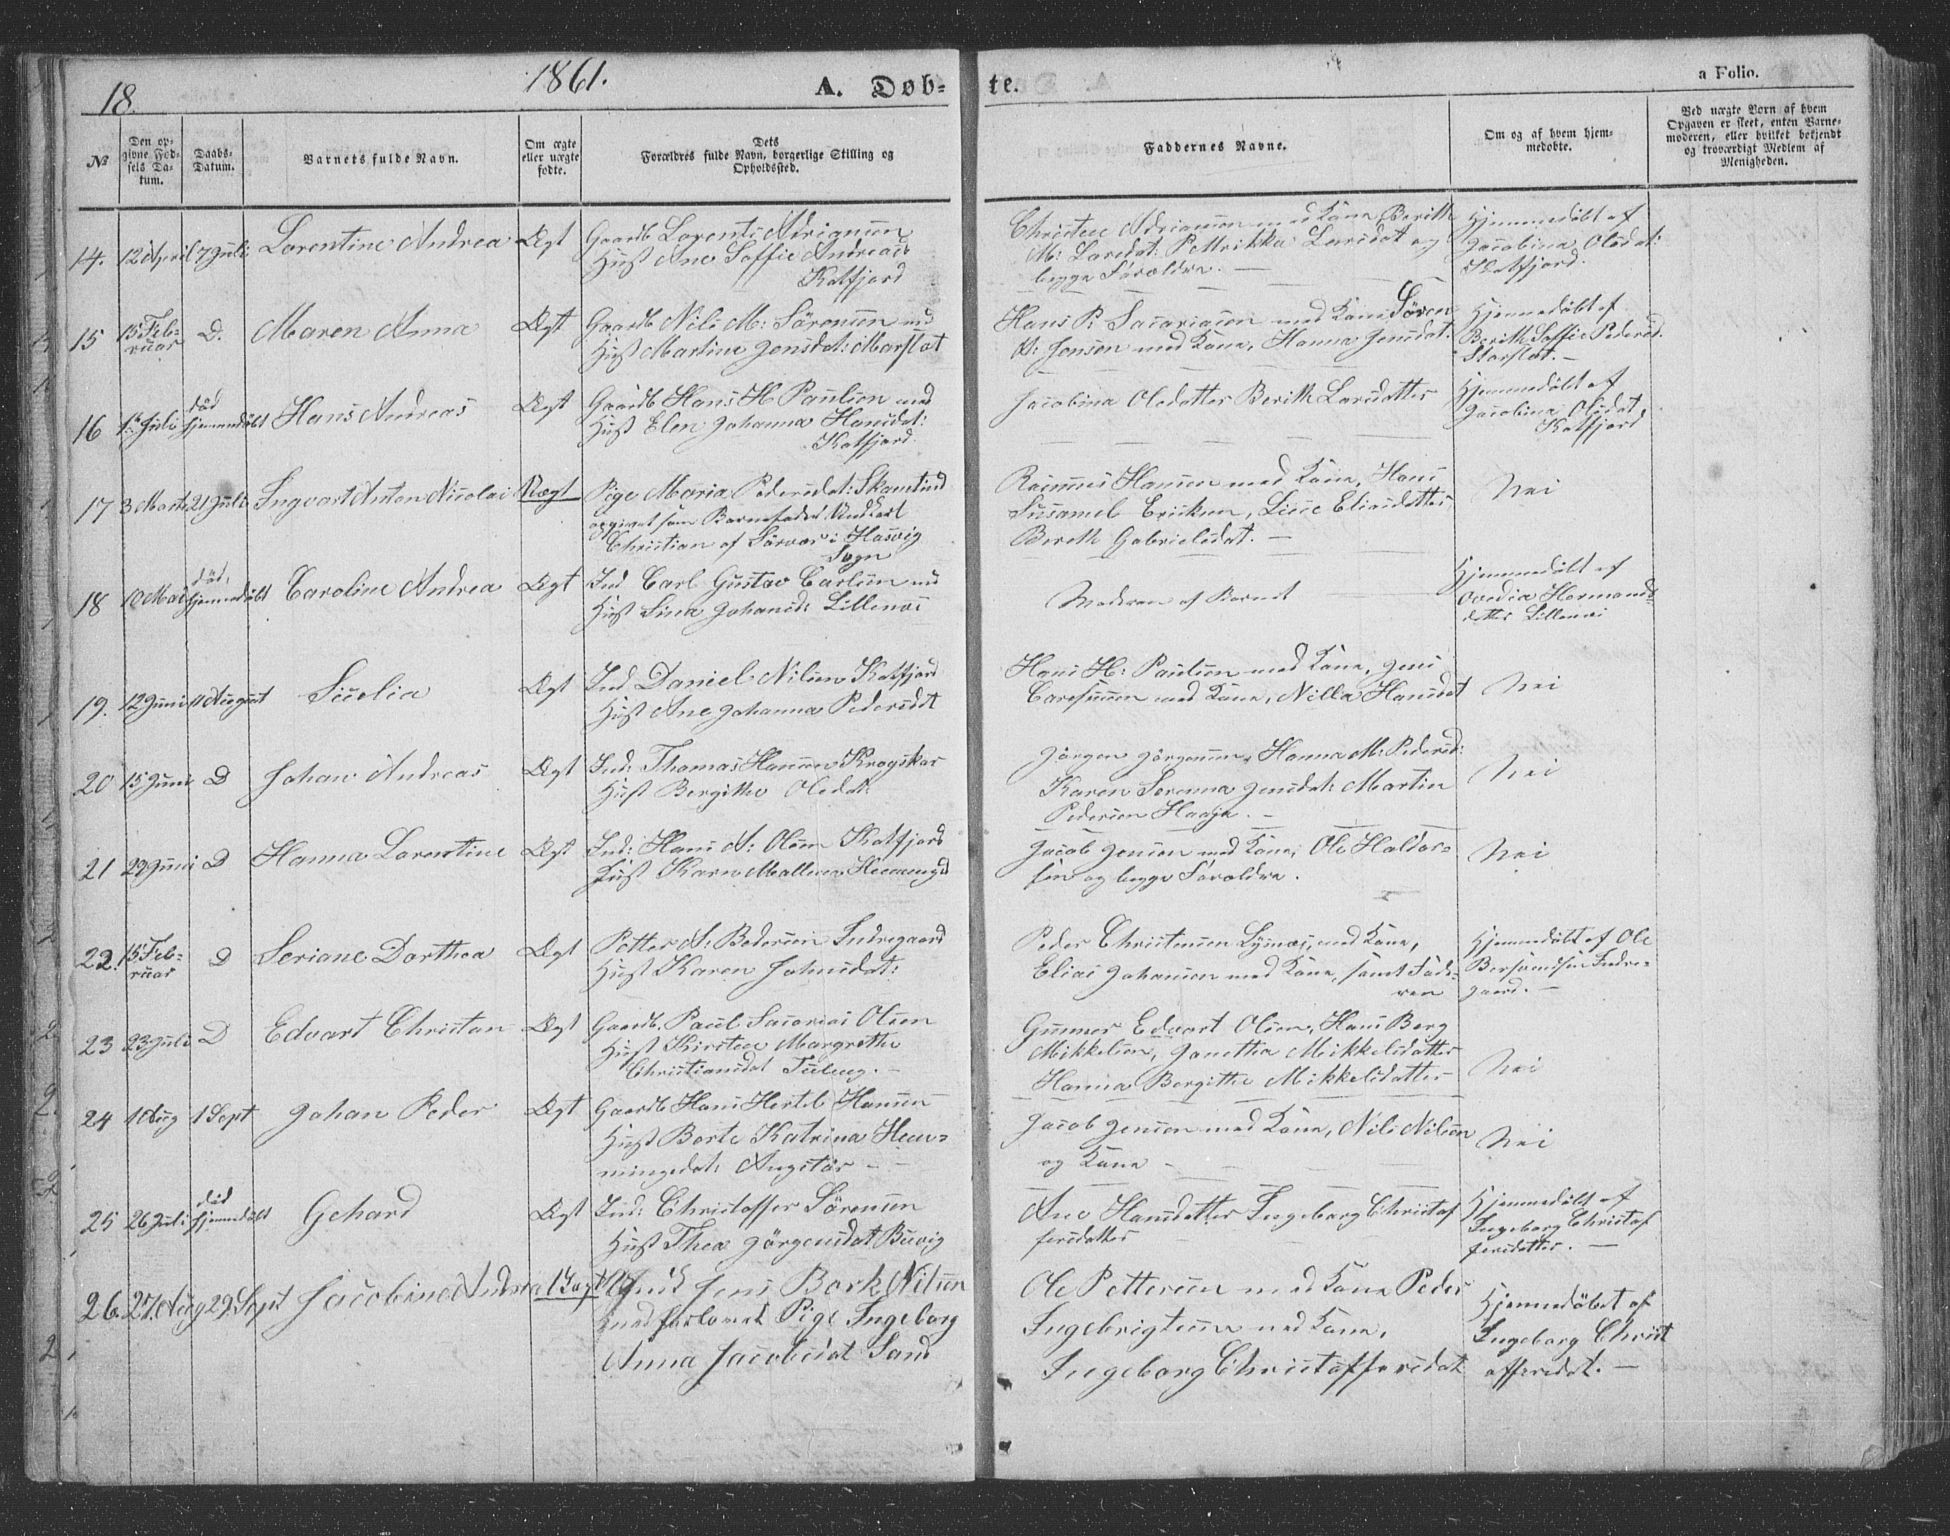 18.
1861.
A. Døb-
te.
a Folio.
№
Den op-
givne Fød-
sels Da-
tum.
Daabs-
Datum.
Barnets fulde Navn.
Om ægte
eller uægte
fødte.
Dets
Forældres fulde Navn, borgerlige Stilling og
Opholdssted.
Faddernes Navne.
Om og af hvem hjem-
medøbte.
Ved uægte Børn af hvem
Opgaven er skeet, enten Barne-
moderen, eller hvilket bekjendt
og troværdigt Medlem af
Menigheden.
14. 12 April 7 Juli Lorentine Andrea Ægt
Gaardb Lorents Adriansen
Hust Ane Soffie Andreasd
Kalfjord
Christen Adriansen med Kone, Berith
M: Larsdat: Pettrikke Larsdat og
begge Forældre.
Hjemmedøbt af
Jacobina Olsdat:
Kalfjord.
15 15 Feb-
ruar D. Maren Anna Ægt
Gaardb Nils M: Sørensen med
Hust Martine Jensdat:
Hans P: Sacariasen med Kone Søren
P: Jensen med Kone, Hanna Jensdat:
Hjemmedøbt af
Berith Soffie Pedersd.
16 1 Juli død
hjemmedøbt Hans Andreas Ægt
Gaardb Hans H Paulsen med
Hust Elen Johanna Hansdat:
Kalfjord
Jacobina Olsdatter Berith Larsdatter
Hjemmedøbt af
Jacobina Olsdat,
Kalfjord
17 3 Marts 21 Juli Ingvart Anton Nicolai Uægt
Pige Maria Pedersdat:
opgivet som Barnefader Ungkarl
Christian af Sørvær i Hasvig
Sogn
Rasmus Hansen med Kone, Hans
Susamel Eriksen, Lisse Eliasdatter
Bereth Gabrielsdat.
Nei
18 10 Mai død,
hjemmedøbt Caroline Andrea Ægt
Ind: Carl Gustav Carlsen med
Hust Sina Johansd:
Moderen af Barnet
Hjemmedøbt af
Ovedia Hermands
datter
19. 12 Juni 11 August Ægt
Ind Daniel Nilsen Kalfjord
Hust Ane Johanna Pedersdat
Hans H: Paulsen med Kone, Jens
med Kone, Nilla Hansdat
Nei
20 15 Juni D Johan Andreas Ægt
Ind: Thomas Hansen
Hust Bergithe Olsdat:
Jørgen Jørgensen, Hanna M: Pedersd:
Karen Serenna Jensdat: Martin
Pedersen Haaja.
Nei
21 29 Juni D Hanna Lorentine Ægt
Ind: Hans A: Olsen Kalfjord
Hust Karn
Jacob Jensen med Kone, Ole Haldor-
sen og begge Forældre.
Nei
22. 15 Feb-
ruar D Seriane Dorthea Ægt
Petter A: Pedersen Indregaard
Hust Karen Johnsdat:
Peder Christensen med Kone,
Elias Johansen med Kone, samt Fade-
ren
Hjemmedøbt af Ole
Indre-
gaard.
23 23 Juli D Edvart Christan Ægt
Gaardb. Paul Sacarias Olsen
Hust Kirsten Margrethe
Christiansdat
Gunner Edvart Olsen, Hans Berg
Mikkelsen, Janetha Mikkelsdatter
Hanna Bergithe Mikkelsdatter
Nei
24 1 Aug 1 Sept Johan Peder Ægt
Gaardb Hans Hertel Hansen
Hust Borte Katrina Hem-
mingsdat:
Jacob Jensen med Kone, Nils Nilsen
og Kone
Nei
25 26 Juli død
hjemmedøbt Gehard Ægt
Ind: Christoffer Sørensen
Hust Thea Jørgensdat
Ane Hansdatter Ingeborg Christof
fersdatter
Hjemmedøbt af
Ingeborg Christof
fersdatter.
26. 27. Aug 29. Sept Jacobine Andrea Uægt
Jens Bork Nilsen
med forlovet Pige Ingeborg
Anna Jacobsdat Sand
Ole Pettersen med Kone Peder
Ingebrigtsen med Kone,
Ingeborg Christoffersdat
Hjemmedøbet af
Ingeborg Christ
offersdat.